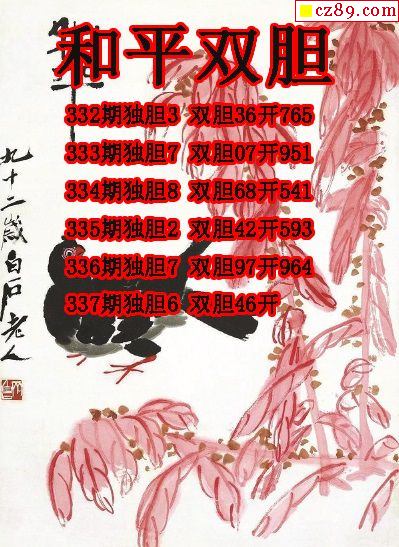 cz89.com
和平双胆
332期独胆3 双胆36开765
333期独胆7 双胆07开951
334期独胆8 双胆68开541
335期独胆2 双胆42开593
336期独胆7 双胆97开964
337期独胆6 双胆46开
九十二岁白石老人